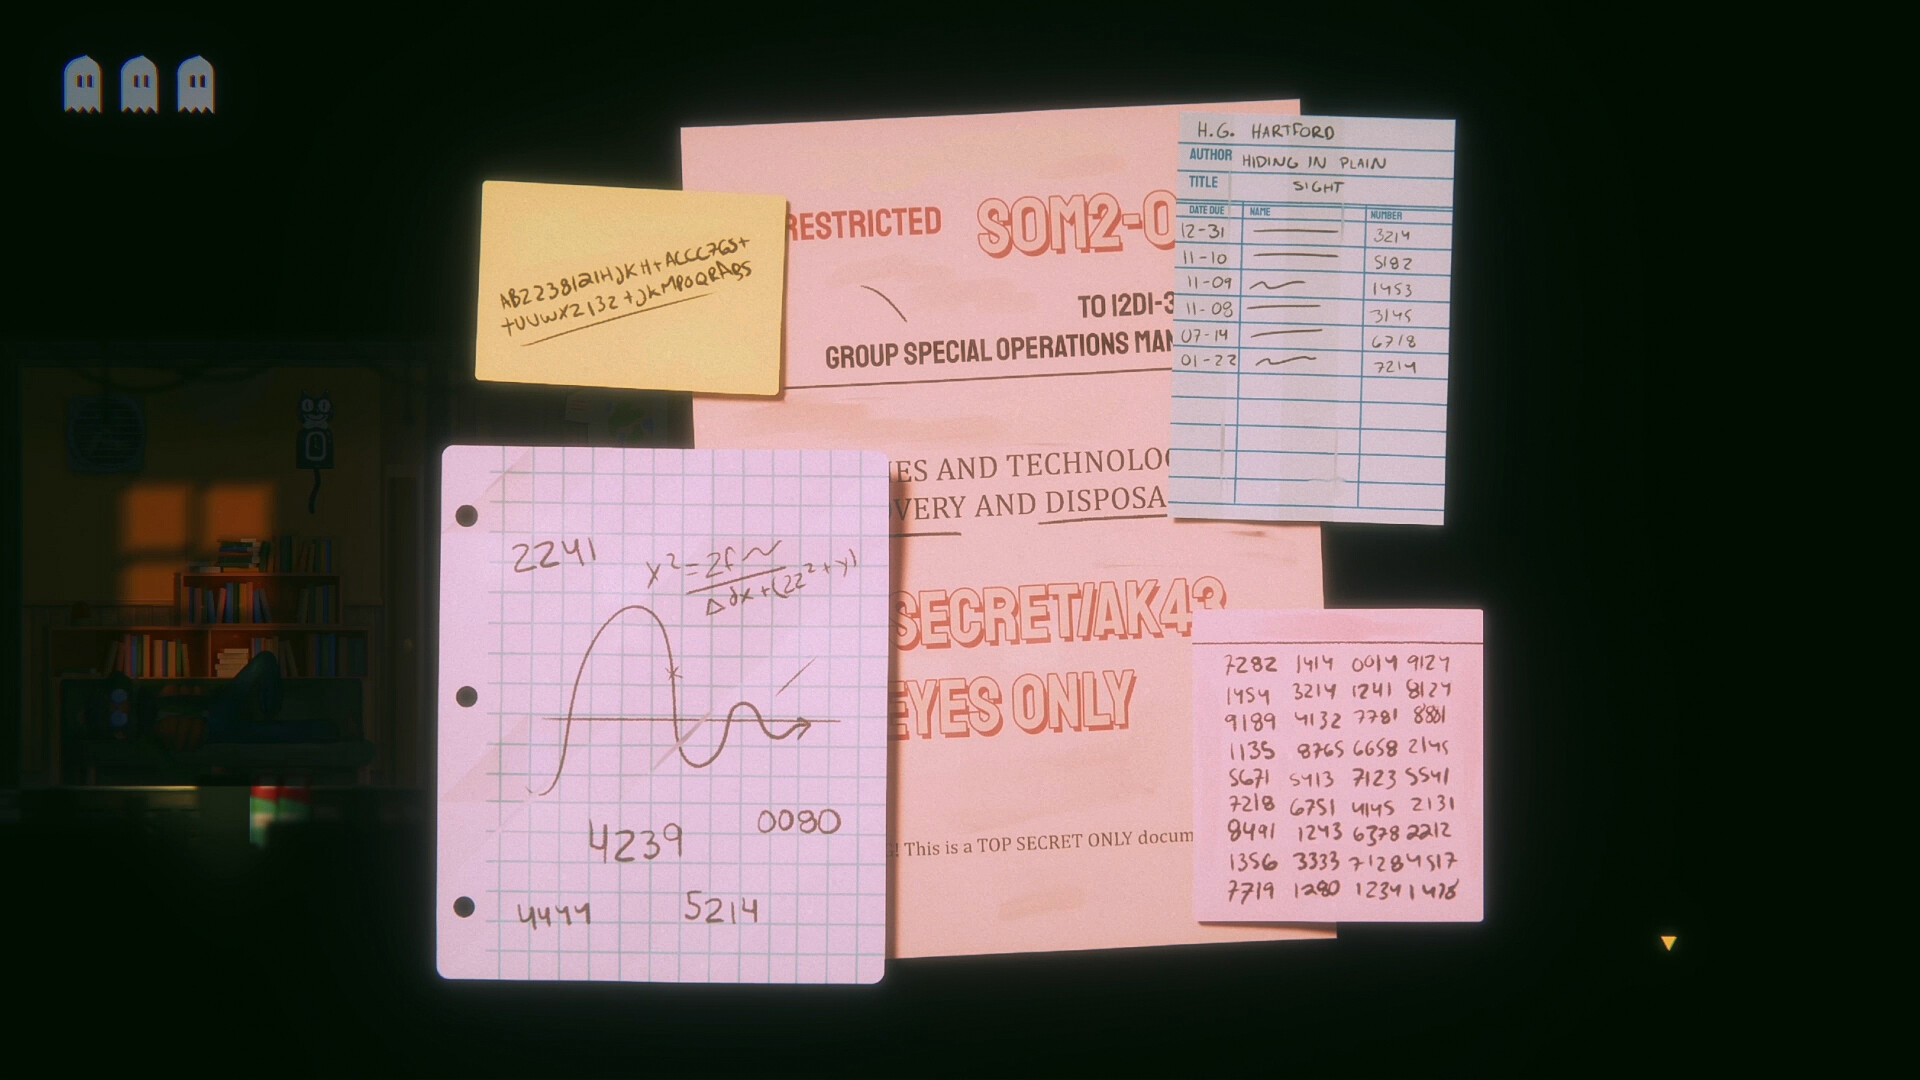 AB2238121HJKH+ACCC7GS+
+UUWXZ132+JKMPOQRABS
RESTRICTED
SOM2-0
TO 12DI-3
GROUP SPECIAL OPERATIONS MAN
IES AND TECHNOLOG
VERY AND DISPOSA
SECRET/AK43
EYES ONLY
! This is a TOP SECRET ONLY docum
H.G. HARTFORD
AUTHOR HIDING IN PLAIN
TITLE SIGHT
DATE DUE NAME NUMBER
12-31 3214
11-10 5182
11-09 1453
11-08 3145
07-14 6718
01-22 7214
2241
4239
0080
4444
5214
7282 1414 0014 9124
1454 3214 1241 8124
9189 4132 7781 8881
1135 8765 6658 2145
5671 5413 7123 5541
7218 6751 4145 2131
8491 1243 6378 2212
1356 3333 7128 4517
7719 1280 1234 1478